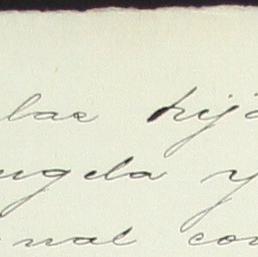 las hija
ugela y
nal con